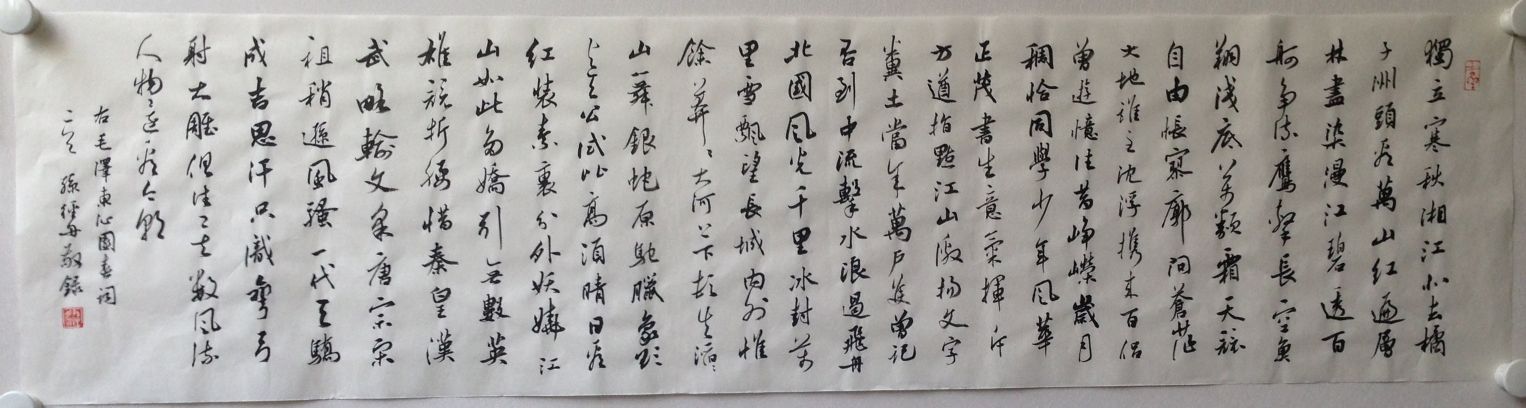 獨立寒秋湘江北去橘
子州頭看萬山紅遍層
林盡染漫江碧透百
舸争流鷹擊長空魚
翔淺底萬類霜天競
自由悵寥廓問蒼茫
大地誰主沈浮携來百侶
曾遊憶往昔崢嶸歲月
稠恰同學少年風華
正茂書生意氣揮斥
方遒指點江山激揚文字
糞土當年萬戶侯曾記
否到中流擊水浪遏飛舟
北國風光千里冰封萬
里雪飄望長城内外惟
餘莽〻大河上下頓失滔〻
山舞銀蛇原馳臘象欲
與天公試比高須晴日看
紅裝素裹分外妖嬈江
山如此多嬌引無數英
雄競折腰惜秦皇漢
武略輸文采唐宗宋
祖稍遜風騷一代天驕
成吉思汗只識彎弓
射大雕俱往矣數風流
人物還看今朝
右毛澤東沁園春詞
二首 孫 舟敬錄